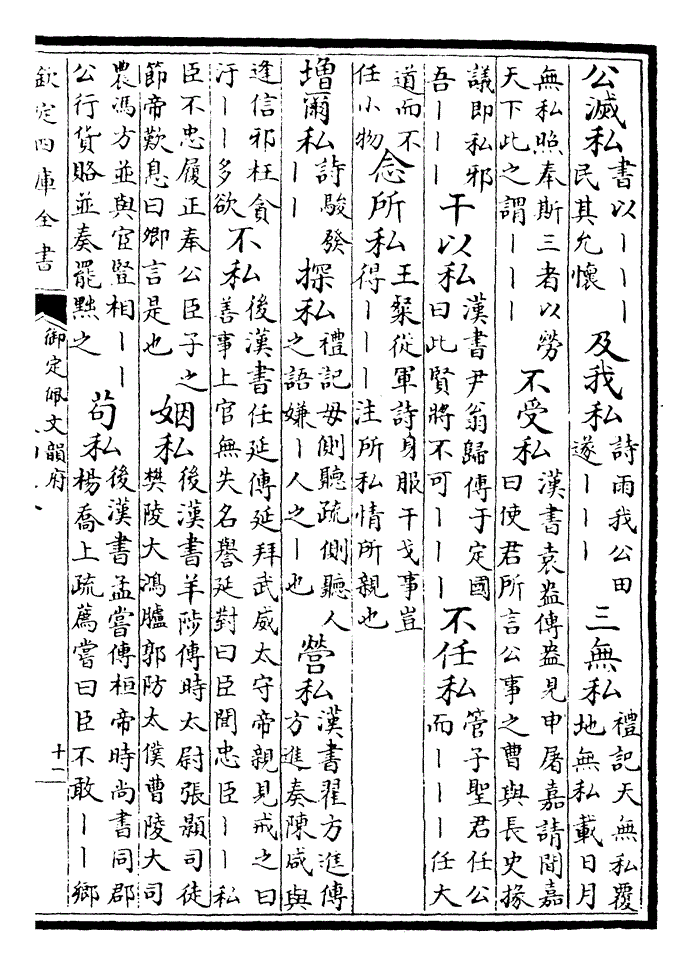 公滅私 書以丨丨丨民其允懷 及我私 詩雨我公田遂丨丨丨 三無私 禮記天無私覆地無私載日月
無私照奉斯三者以勞天下此之謂丨丨丨 不受私 漢書袁盎傳盎見申屠嘉請間嘉曰使君所言公事之曹與長史掾
議即私邪吾丨丨丨 干以私 漢書尹翁歸傳于定國曰此賢將不可丨丨丨 不任私 管子聖君任公而丨丨丨任大
道而不任小物 念所私 王粲從軍詩身服干戈事豈得丨丨丨注所私情所親也
增爾私 詩駿發丨丨 探私 禮記毋側聽疏側聽人之語嫌丨人之丨也 營私 漢書翟方進傳方進奏陳咸與
逢信邪枉貪汙丨丨多欲 不私 後漢書任延傳延拜武威太守帝親見戒之曰善事上官無失名譽延對曰臣聞忠臣丨丨私
臣不忠履正奉公臣子之節帝歎息曰卿言是也 姻私 後漢書羊陟傳時太尉張顥司徒樊陵大鴻臚郭防太僕曹陵大司
農馮方並與宦豎相丨丨公行貨賂並奏罷黜之 茍私 後漢書孟嘗傳桓帝時尚書同郡楊喬上疏薦嘗曰臣不敢丨丨鄉
欽定四庫全書
御定佩文韻府